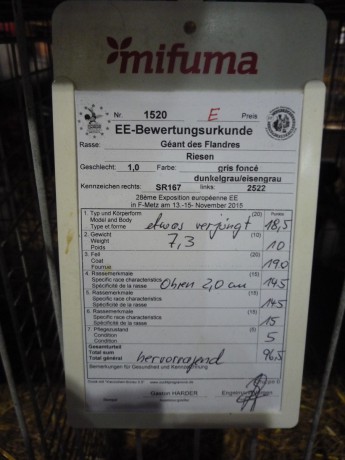 mifuma
Nr. 1520 E Preis
EE-Bewertungsurkunde
Rasse: Géant des Flandres
Riesen
Geschlecht: 1,0 Farbe: gris foncé
dunkelgrau/eisengrau
Kennzeichen rechts: SR167 links: 2522
28ème Exposition européenne EE
in F-Metz am 13.-15- November 2015
1. Typ und Körperform (20) Punkte
Model and Body
Type et forme etwas verjüngt 18,5
2. Gewicht (10)
Weight 7,3
Poids 10
3. Fell (20)
Coat
Fourrure 19.0
4. Rassemerkmale (15)
Specific race characteristics
Spécificité de la race Ohren 2,0 cm 14.5
5. Rassemerkmale (15)
Specific race characteristics
Spécificité de la race 14.5
6. Rassemerkmale (15)
Specific race characteristics
Spécificité de la race 15
7. Pflegezustand (5)
Condition
Condition 5
Gesamturteil
Total sum
Total général hervorragend 96,5
Bemerkungen für Gesundheit und Kennzeichnung
Gaston HARDER